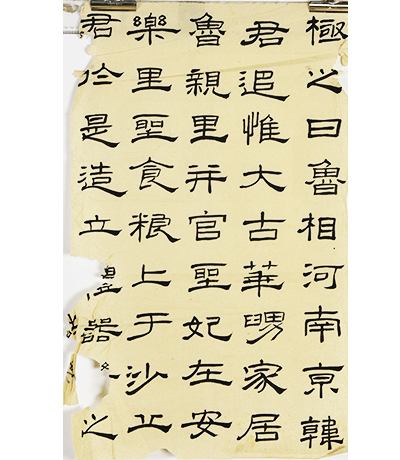 極之日魯相河南京韓
君追惟大古華舅家居
魯親里并官聖妃在安
樂里聖食糧亡于沙丘
君於是造立器之